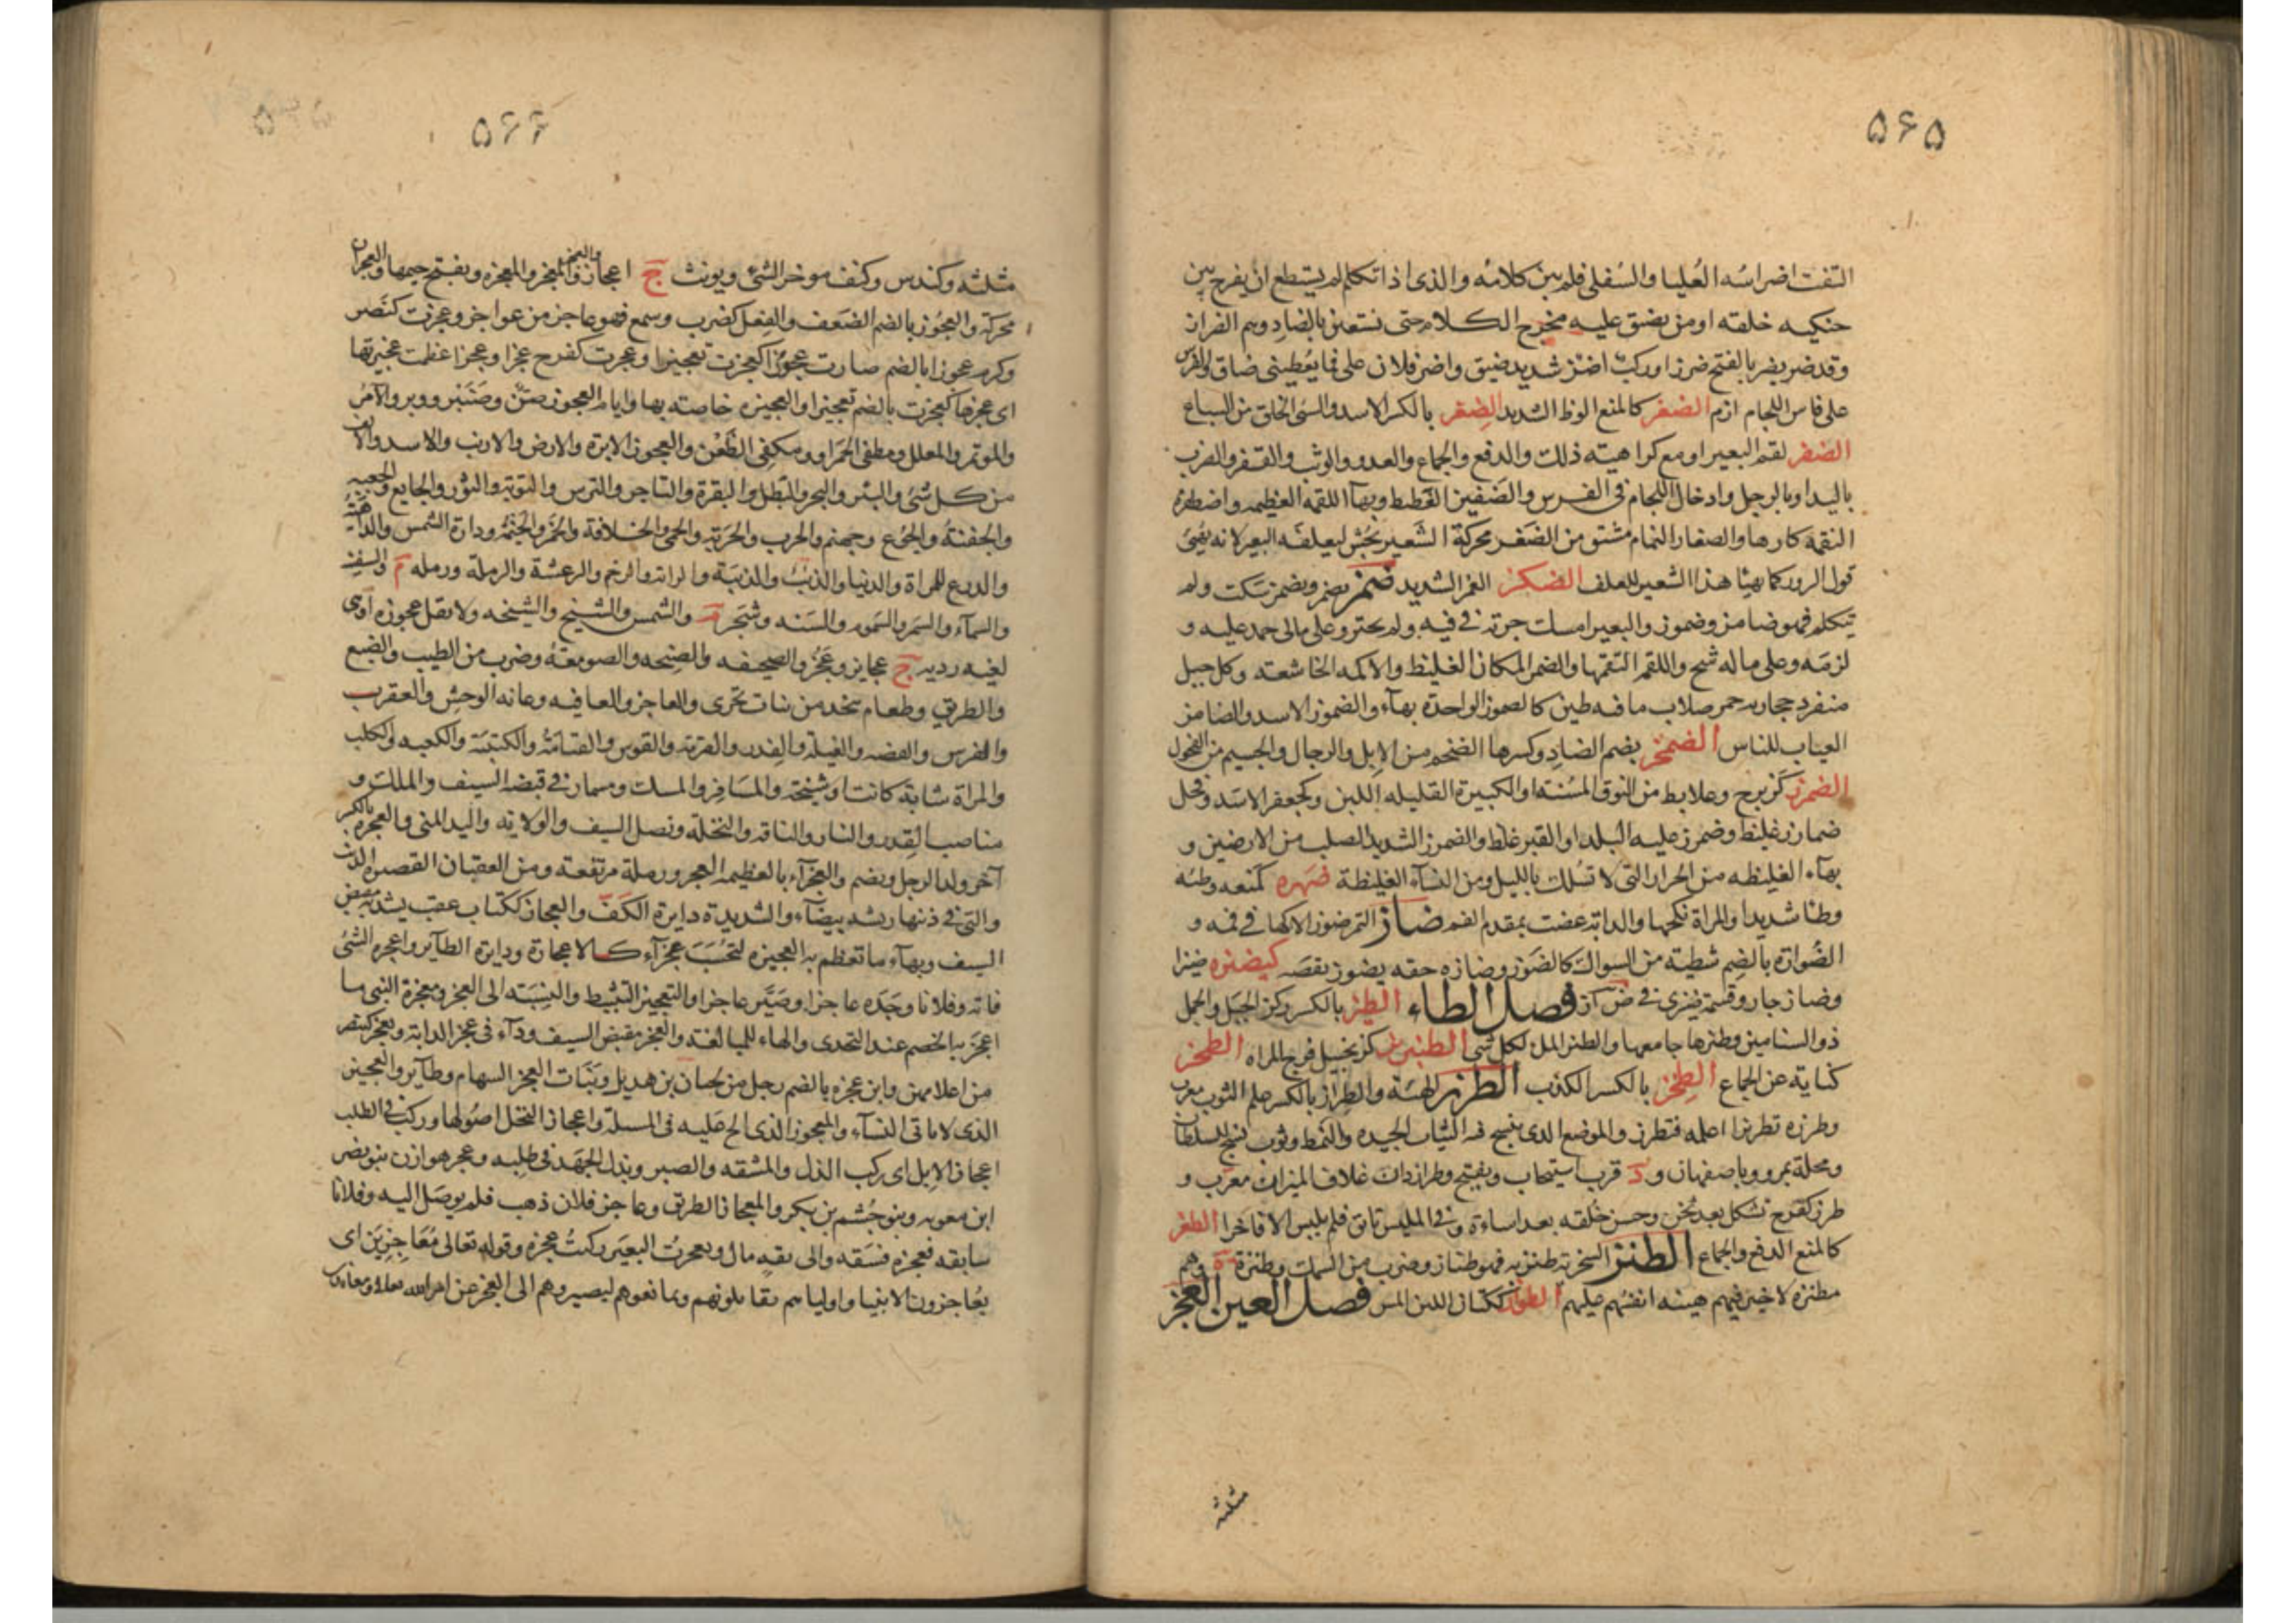 ۵۶۵
التفت اضراسه العليا والسفلى فلم يبن كلامه والذى اذا تكلم لم يستطع ان يفرج بين
حنكيه خلقه او من يضيق عليه مخرج الكلام حتى يستعين بالضاد وهم الفزاز
وقد ضز يضز بالفتح ضززا وركب اضز شديد ضيق واضز فلان على فما يعطينى ضاق والفرس
على فاس اللجام ازم الضغز كالمنع الوطأ الشديد الضغز بالكسر الاسد والسئ الخلق من السباع
الضفز لقم البعير او مع كراهيته ذلك والدفع والجماع والعدو والوثب والقفز والضرب
باليد او بالرجل وادخال اللجام فى الفرس والضفيز الغطيط وبهآ اللقمه العظيمه واضطفزه
التقمه كارها والضفاز النمام مشتق من الضفز محركة الشعير يجش ليعلفه البعير لانه يهيئ
قول الزور كما يهيئا هذا الشعير للعلف الضكز الغمز الشديد ضمز يضمز ويضمز سكت ولم
يتكلم فهو ضامز وضموز والبعير امسك جرته فى فيه ولم يجتر وعلى مالى جمد عليه و
لزمه وعلى ماله شح واللقم التقمها والضمز المكان الغليظ والاكمه الخاشعته وكل جبل
منفرد حجارته حمر صلاب ما فيه طين كالضموز الواحدة بهاء والضموز الاسد والضامز
العياب للناس الضمخز بضم الضاد وكسرها الضخم من الابل والرجال والجسيم من الفحول
الضمرز كزبرج وعلابط من النوق المسنة او الكبيرة القليله اللبن وكجعفر الاسد وفحل
ضمارز غليظ وضمرز عليه البلد او القبر غلظ والضمرز الشديد الصلب من الارضين و
بهاء الغليظه من الحرار التى لا تسلك بالليل ومن النسآء الغليظة ضهزه كمنعه وطئه
وطئا شديدا والمراة نكحها والدابة عضت بمقدم الفم ضاز التمر ضوزا لاكها فى فمه و
الضوازه بالضم شظية من السواك كالضوز وضازه حقه يضوز نقصه كيضيزه ضيزا
وضاز جار وقسمة ضيزى فى ض أز فصل الطاء الطبز بالكسر ركن الجبل والجمل
ذو السنامين وطبزها جامعها والطبز الملء لكل شئ الطنبريز كزنجبيل فرج المراه الطحز
كناية عن الجماع الطخز بالكسر الكذب الطرز الهيئة والطراز بالكسر علم الثوب معرب
وطرزه تطريزا اعلمه فتطرز والموضع الذى ينسج فيه الثياب الجيده والنمط وثوب نسج للسلطان
ومحلة بمرو وباصفهان و د قرب اسيتجاب ويفتح وطرازدان غلاف الميزان معرب و
طرز كفرح تشكل بعد ثخن وحسن خلقه بعد اساءة و فى الملبس تانق فلم يلبس الا فاخرا الطعز
كالمنع الدفع والجماع الطنز السخرية طنز به فهو طناز وضرب من السمك وطنزة ة وهم
مطنزه لا خير فيهم هينه انفسهم عليهم الطواز ككتان اللين المس فصل العين العجز
مثلثه
۵۶۶
مثلثه وكندس وكتف موخر الشئ ويونث ج اعجاز والعجز والمعجز والمعجزه وبفتح جيمها والعجزان
محركة والعجوز بالضم الضعف والفعل كضرب وسمع فهو عاجز من عواجز وعجزت كنصر
وكرم عجوزا بالضم صارت عجوزا كعجزت تعجيزا وعجزت كفرح عجزا وعجزا عظمت عجيزتها
اى عجزها كعجزت بالضم تعجيزا والعجيزه خاصته بها وايام العجوز صن وصنبر ووبر والآمر
والموتمر والمعلل ومطفى الجمر او ومكفى الظعن والعجوز الابرة والارض والارنب والاسد والالف
من كل شئ والبئر والبحر والبطل والبقرة والتاجر والترس والتوبة والثور والجايع والجعبه
والجفنة والجوع وجهنم والحرب والحربة والحمى والخلافة والخمر والخيمة ودارة الشمس والداهية
والدرع للمراة والدنيا والذئب والذئبة والراية والرخم والرعشة والرملة ورمله م والسفن
والسمآء والسمن والسموم والسنه وشجر م والشمس والشيخ والشيخه ولا يقل عجوزه او هى
لغيه رديه ج عجايز وعجز والصحيفه والصنجه والصومعة وضرب من الطيب والضبع
والطريق وطعام يتخذ من نبات بحرى والعاجز والعافيه وعانه الوحش والعقرب
والفرس والفضه والقبلة والقدر والقرية والقوس والقيامة والكتيبة والكعبه والكلب
والمراة شابة كانت او شيخة والمسافر والمسك ومسمار فى قبضه السيف والملك و
مناصب القدر والنار والناقه والنخلة ونصل السيف والولايه واليد اليمنى والعجزه بالكسر
آخر ولد الرجل ويضم والعجزآء بالعظيمه العجز ورملة مرتفعة ومن العقبان القصيره الذنب
والتى فى ذنبها ريشه بيضآء والشديدة دايرة الكف والعجاز ككتاب عقب يشد به مقبض
السيف وبهاء ما تعظم به العجيزه لتحسب عجزآء كالاعجازة ودايرة الطآير واعجزه الشئ
فاته وفلانا وجده عاجزا وصيره عاجزا والتعجيز التثبيط والنسبته الى العجز ومعجزة النبى ما
اعجز به الخصم عند التحدى والهاء للمبالغه والعجز مقبض السيف ودآء فى عجز الدابة وتعجز كتنصر
من اعلامهن وابن عجزه بالضم رجل من لحيان بن هذيل وبنات العجز السهام وطآير والعجيز
الذى لا ياتى النسآء والمعجوز الذى الح عليه فى المسئلة واعجاز النخل اصولها وركب فى الطلب
اعجاز الابل اى ركب الذل والمشقه والصبر وبذل الجهد فى طلبه وعجز هوازن بنو نصر
ابن معويه وبنو جشم بن بكر والمعجاز الطريق وعاجز فلان ذهب فلم يوصل اليه وفلانا
سابقه فعجزه فسبقه والى ثقه مال وتعجزت البعير ركبت عجزه وقوله تعالى معاجزين اى
يعاجزون الانبيا واولياهم يقاتلونهم ويمانعوهم ليصيروهم الى العجز عن امر الله تعالى ومعاندين